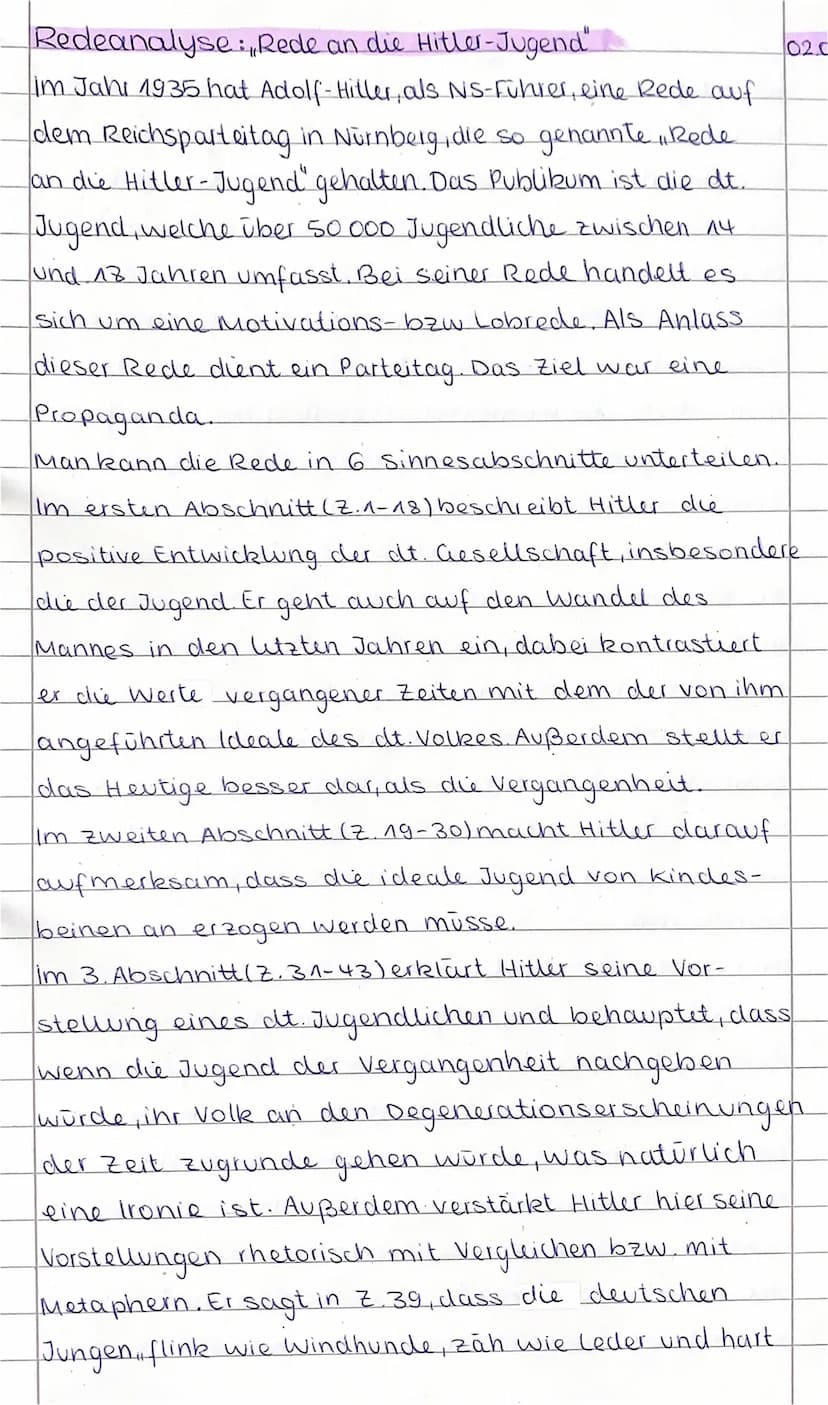 Redeanalyse: „Rede an die Hitler-Jugend"
02.0
Im Jahr 1935 hat Adolf-Hitler, als NS-Führer, eine Rede auf
dem Reichsparteitag in Nürnberg, die so genannte „Rede
an die Hitler-Jugend" gehalten. Das Publikum ist die dt.
Jugend, welche über 50 000 Jugendliche zwischen 14
und 18 Jahren umfasst. Bei seiner Rede handelt es
sich um eine Motivations- bzw Lobrede. Als Anlass
dieser Rede dient ein Parteitag. Das Ziel war eine
Propaganda.
Man kann die Rede in 6 Sinnesabschnitte unterteilen.
Im ersten Abschnitt (Z. 1-18) beschreibt Hitler die
positive Entwicklung der dt. Gesellschaft, insbesondere
die der Jugend. Er geht auch auf den Wandel des
Mannes in den letzten Jahren ein, dabei kontrastiert
er die Werte vergangener Zeiten mit dem der von ihm
angeführten Ideale des dt. Volkes. Außerdem stellt er
das Heutige besser dar, als die Vergangenheit.
Im zweiten Abschnitt (Z. 19-30) macht Hitler darauf
aufmerksam, dass die ideale Jugend von Kindes-
beinen an erzogen werden müsse.
Im 3. Abschnitt (Z. 31-43) erklärt Hitler seine Vor-
stellung eines dt. Jugendlichen und behauptet, dass
wenn die Jugend der Vergangenheit nachgeben
würde, ihr Volk an den Degenerationserscheinungen
der Zeit zugrunde gehen würde, was natürlich
eine Ironie ist. Außerdem verstärkt Hitler hier seine
Vorstellungen rhetorisch mit Vergleichen bzw. mit
Metaphern. Er sagt in Z. 39, dass die deutschen
Jungen „flink wie Windhunde, zäh wie Leder und hart